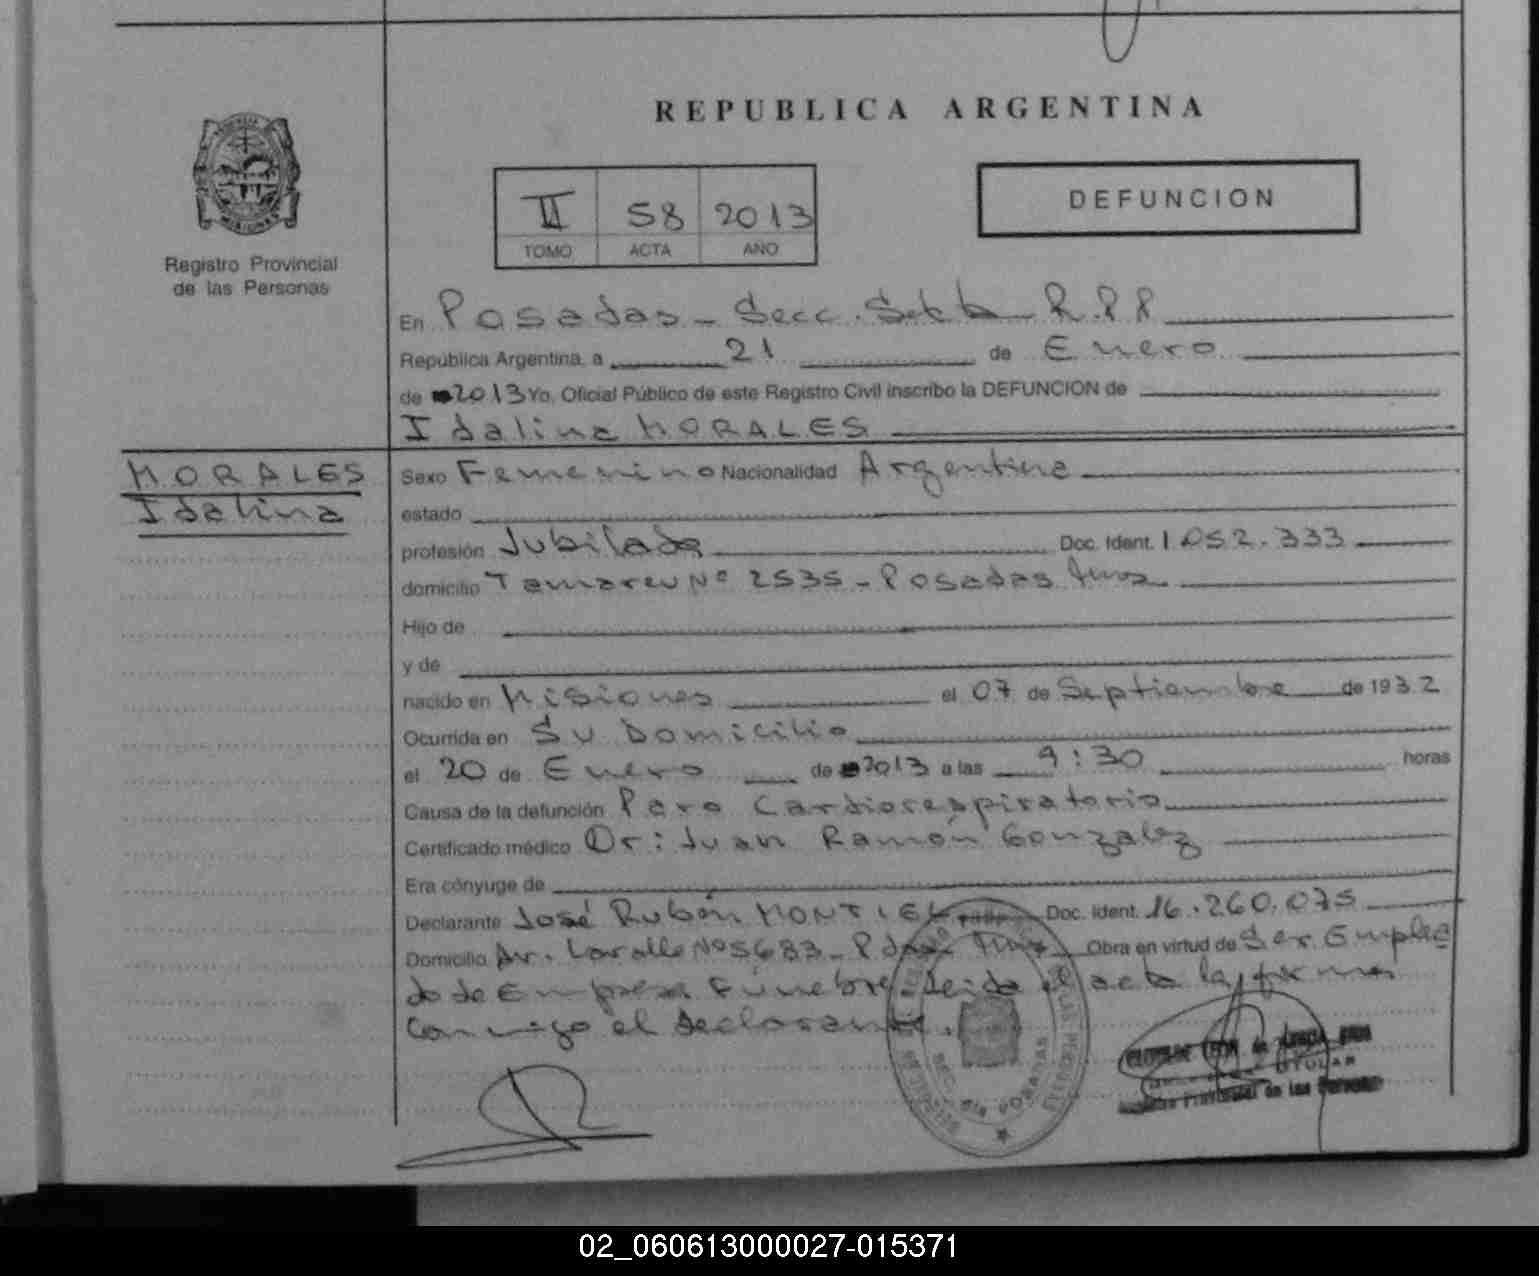 REPUBLICA ARGENTINA
Registro Provincial
de las Personas
II 58 2013
TOMO ACTA AÑO
DEFUNCION
En Posadas - Secc. Sexta R.P.P
República Argentina, a 21 de Enero
de 2013 Yo, Oficial Público de este Registro Civil inscribo la DEFUNCION de
Idalina MORALES
MORALES
Idalina
Sexo Femenino Nacionalidad Argentina
estado
profesión Jubilada Doc. Ident. 1.052.333
domicilio Tamareu Nº 2535 - Posadas Mnes
Hijo de
y de
nacido en Misiones el 07 de Septiembre de 1932
Ocurrida en Su Domicilio
el 20 de Enero de 2013 a las 9:30 horas
Causa de la defunción Paro Cardiorespiratorio
Certificado médico Dr: Juan Ramón Gonzalez
Era cónyuge de
Declarante José Rubén MONTIEL Doc. Ident. 16.260.075
Domicilio Av. Lavalle Nº 5683 - Pdas Mnes Obra en virtud de Ser Emplea
do de Empresa Fúnebre leida el acta la firma
conmigo el declarante.
SECC. 6ta POSADAS
TITULAR
Provincial de las Personas
02_060613000027-015371